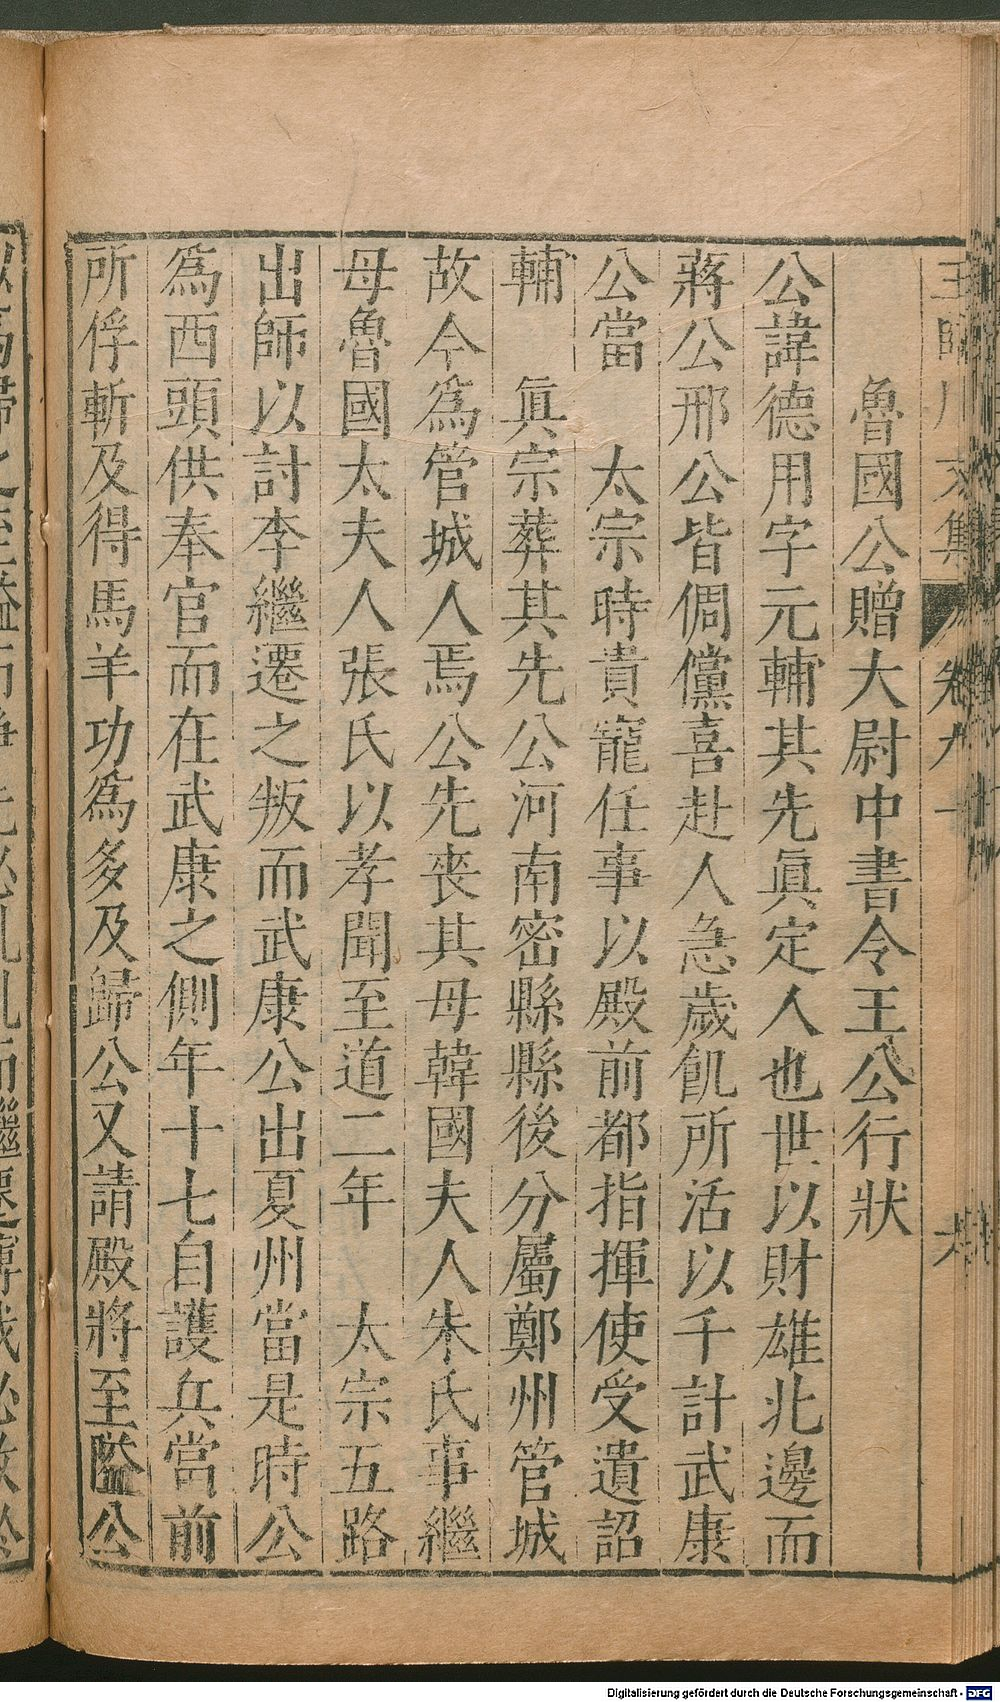 魯國公贈大尉中書令王公行狀
公諱德用字元輔其先眞定人也世以財雄北邊而
蔣公邢公皆倜儻喜赴人急歲飢所活以千計武康
公當　太宗時貴寵任事以殿前都指揮使受遺詔
輔　眞宗葬其先公河南密縣縣後分屬鄭州管城
故今爲管城人焉公先喪其母韓國夫人朱氏事繼
母魯國太夫人張氏以孝聞至道二年　太宗五路
出師以討李繼遷之叛而武康公出夏州當是時公
爲西頭供奉官而在武康之側年十七自護兵當前
所俘斬及得馬羊功爲多及歸公又請殿將至隘公
Digitalisierung gefördert durch die Deutsche Forschungsgemeinschaft - DFG